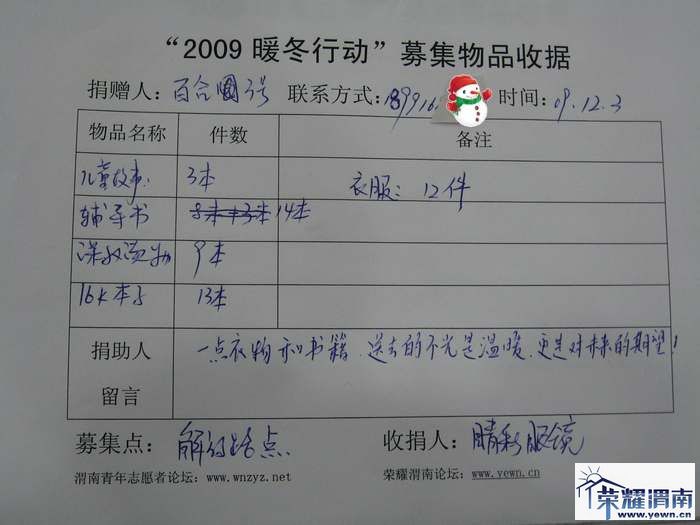 “2009 暖冬行动” 募集物品收据
捐赠人: 百合圈3号 联系方式: 89916 时间: 09.12.3
物品名称 件数 备注
儿童故事: 3本 衣服: 12件
辅导书 14本
课外读物 9本
16K本子 13本
捐助人留言 一点衣物和书籍,送去的不光是温暖,更是对未来的期望!
募集点: 解放路点 收捐人: 睛彩眼镜
渭南青年志愿者论坛: www.wnzyz.net 荣耀渭南论坛: www.yewn.cn
荣耀渭南
www.yewn.cn